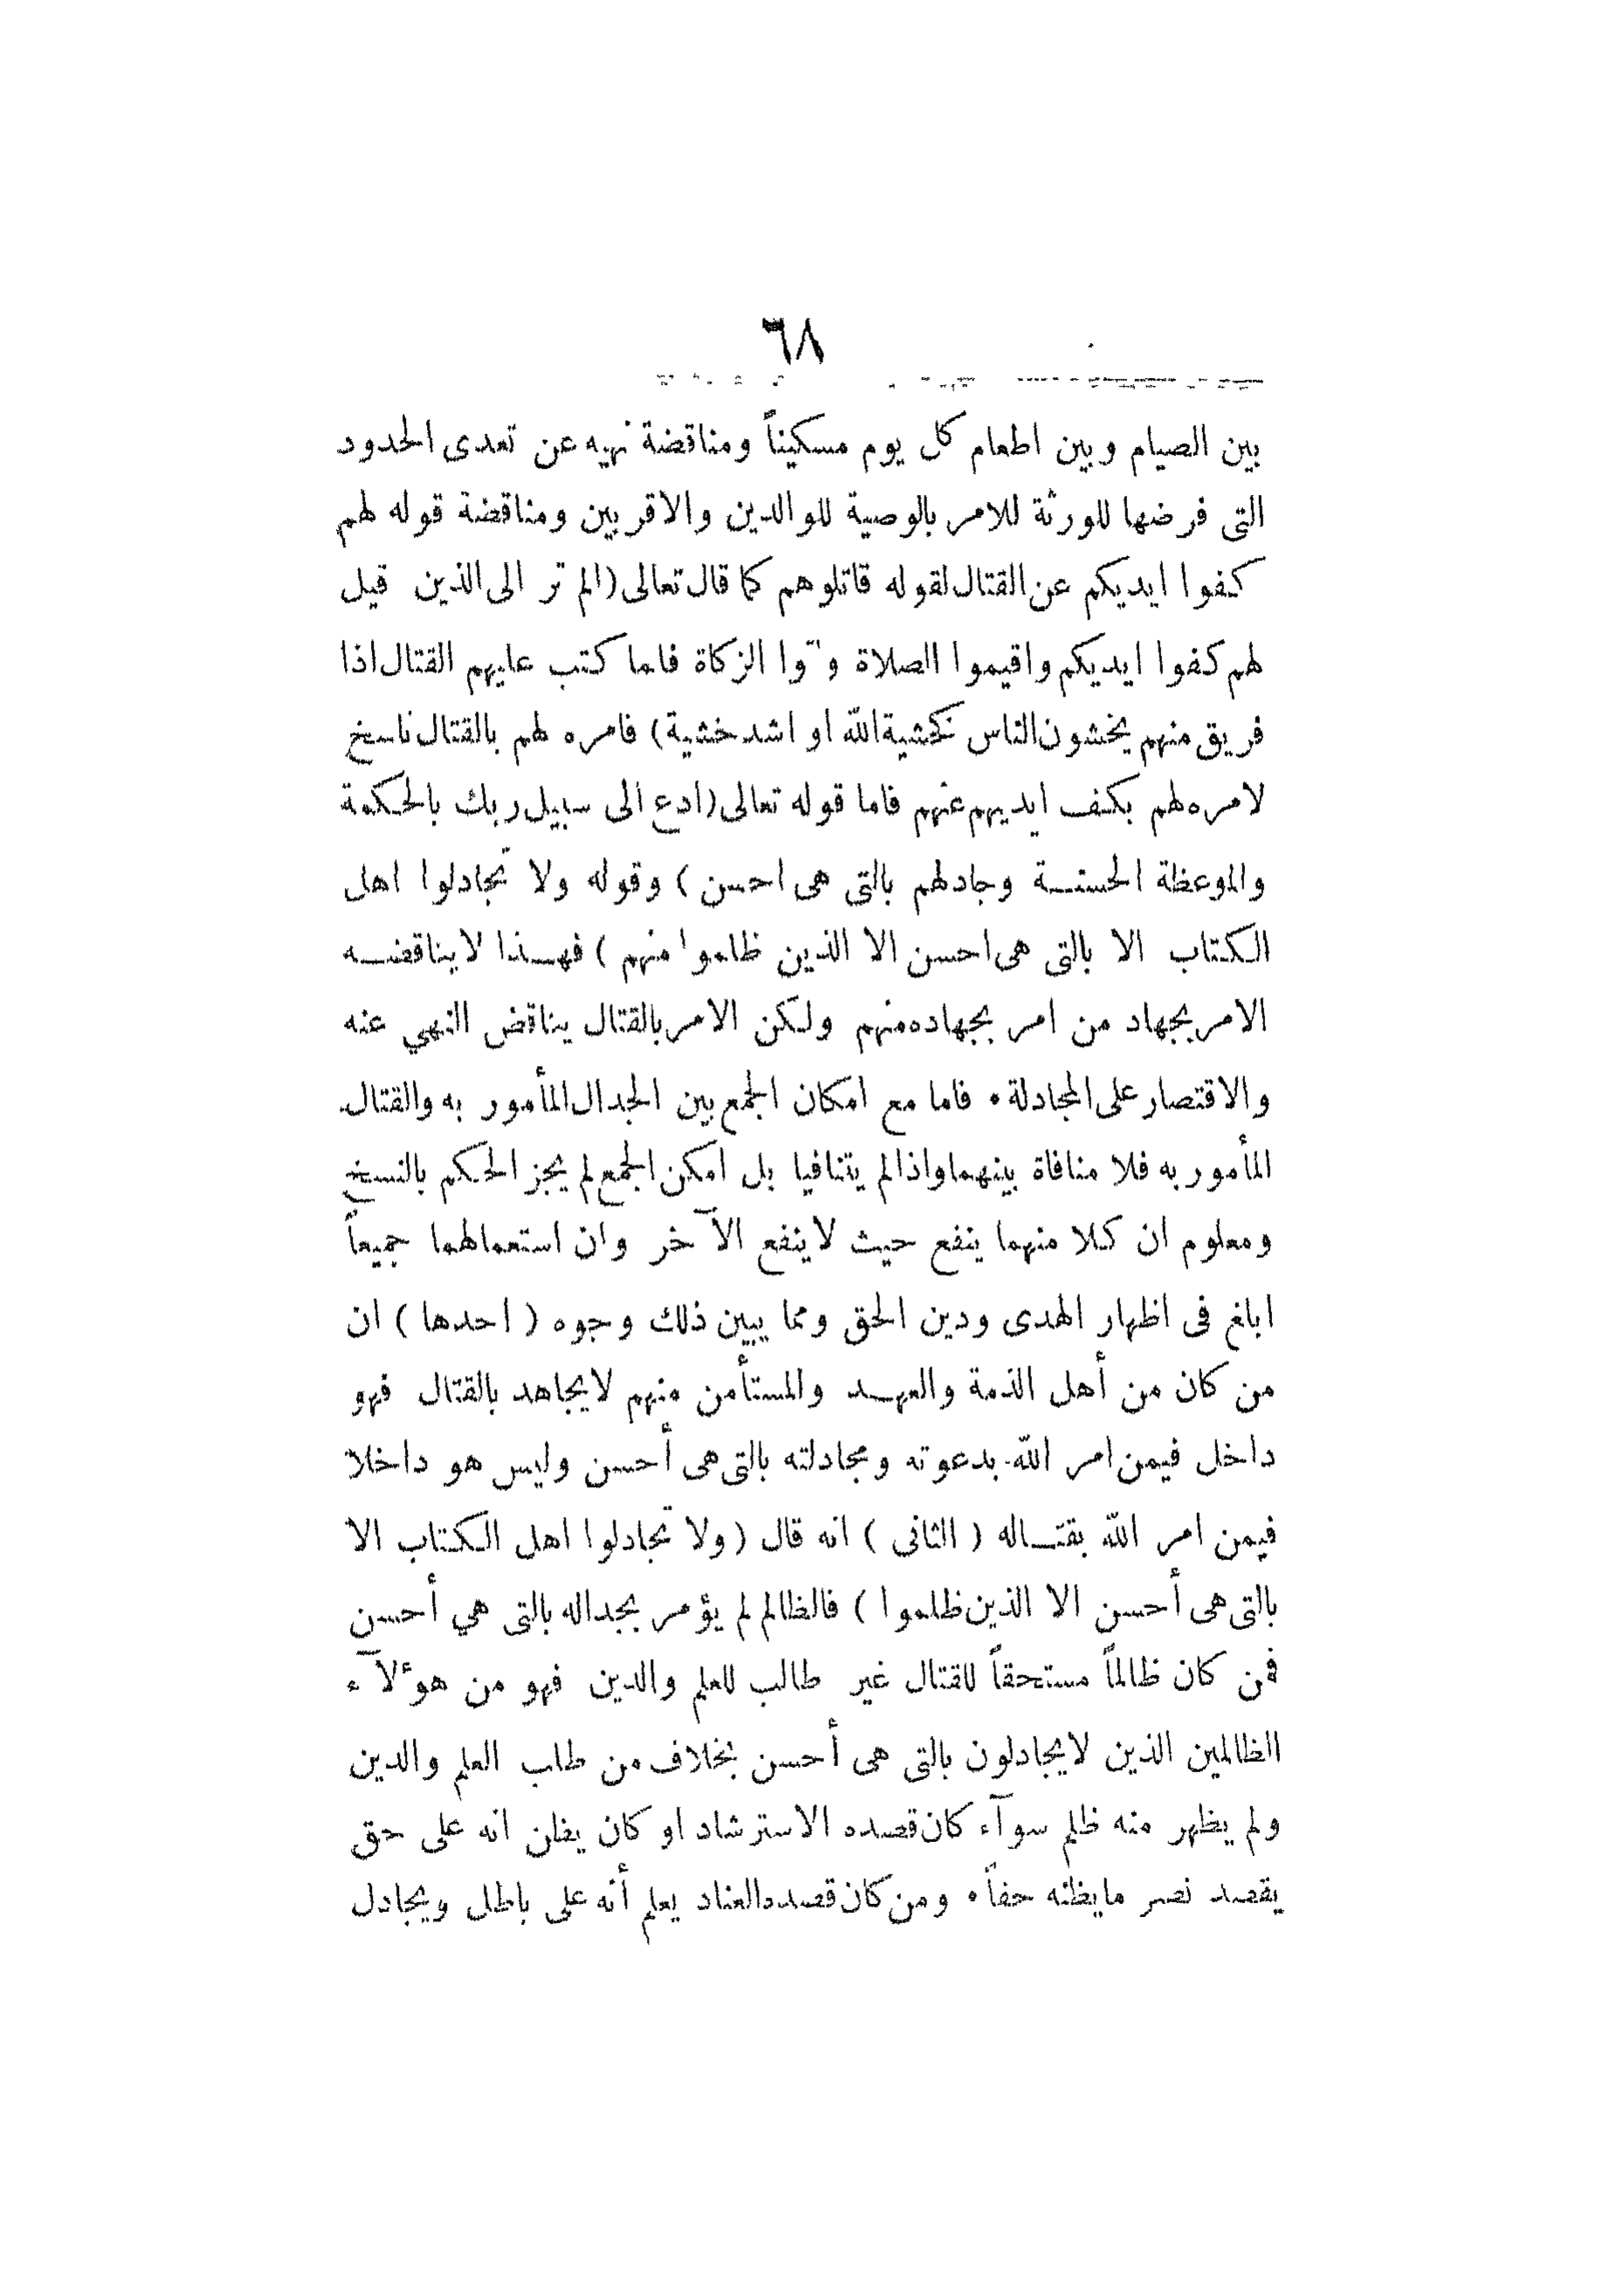 ٦٨
بين الصيام وبين اطعام كل يوم مسكيناً ومناقضة نهيه عن تعدى الحدود
التى فرضها للورثة للامر بالوصية للوالدين والاقربين ومناقضة قوله لهم
كفوا ايديكم عن القتال لقوله قاتلوهم كما قال تعالى (الم تر الى الذين قيل
لهم كفوا ايديكم واقيموا الصلاة وآتوا الزكاة فلما كتب عليهم القتال اذا
فريق منهم يخشون الناس كخشية الله او اشد خشية) فامره لهم بالقتال ناسخ
لامره لهم بكف ايديهم عنهم فاما قوله تعالى (ادع الى سبيل ربك بالحكمة
والموعظة الحسنة وجادلهم بالتى هى احسن) وقوله ولا تجادلوا اهل
الكتاب الا بالتى هى احسن الا الذين ظلموا منهم) فهذا لا يناقضه
الامر بجهاد من امر بجهاده منهم ولكن الامر بالقتال يناقض النهي عنه
والاقتصار على المجادلة • فاما مع امكان الجمع بين الجدال المأمور به والقتال
المأمور به فلا منافاة بينهما واذا لم يتنافيا بل امكن الجمع لم يجز الحكم بالنسخ
ومعلوم ان كلا منهما ينفع حيث لا ينفع الآخر وان استعمالهما جميعاً
ابلغ فى اظهار الهدى ودين الحق ومما يبين ذلك وجوه (احدها) ان
من كان من أهل الذمة والعهد والمستأمن منهم لا يجاهد بالقتال فهو
داخل فيمن امر الله بدعوته ومجادلته بالتى هى أحسن وليس هو داخلا
فيمن امر الله بقتاله (الثانى) انه قال (ولا تجادلوا اهل الكتاب الا
بالتى هى أحسن الا الذين ظلموا) فالظالم لم يؤمر بجداله بالتى هي أحسن
فمن كان ظالماً مستحقاً للقتال غير طالب للعلم والدين فهو من هؤلآء
الظالمين الذين لا يجادلون بالتى هى أحسن بخلاف من طلب العلم والدين
ولم يظهر منه ظلم سوآء كان قصده الاسترشاد او كان يظن انه على حق
يقصد نصر ما يظنه حقاً • ومن كان قصده العناد يعلم أنه على باطل ويجادل